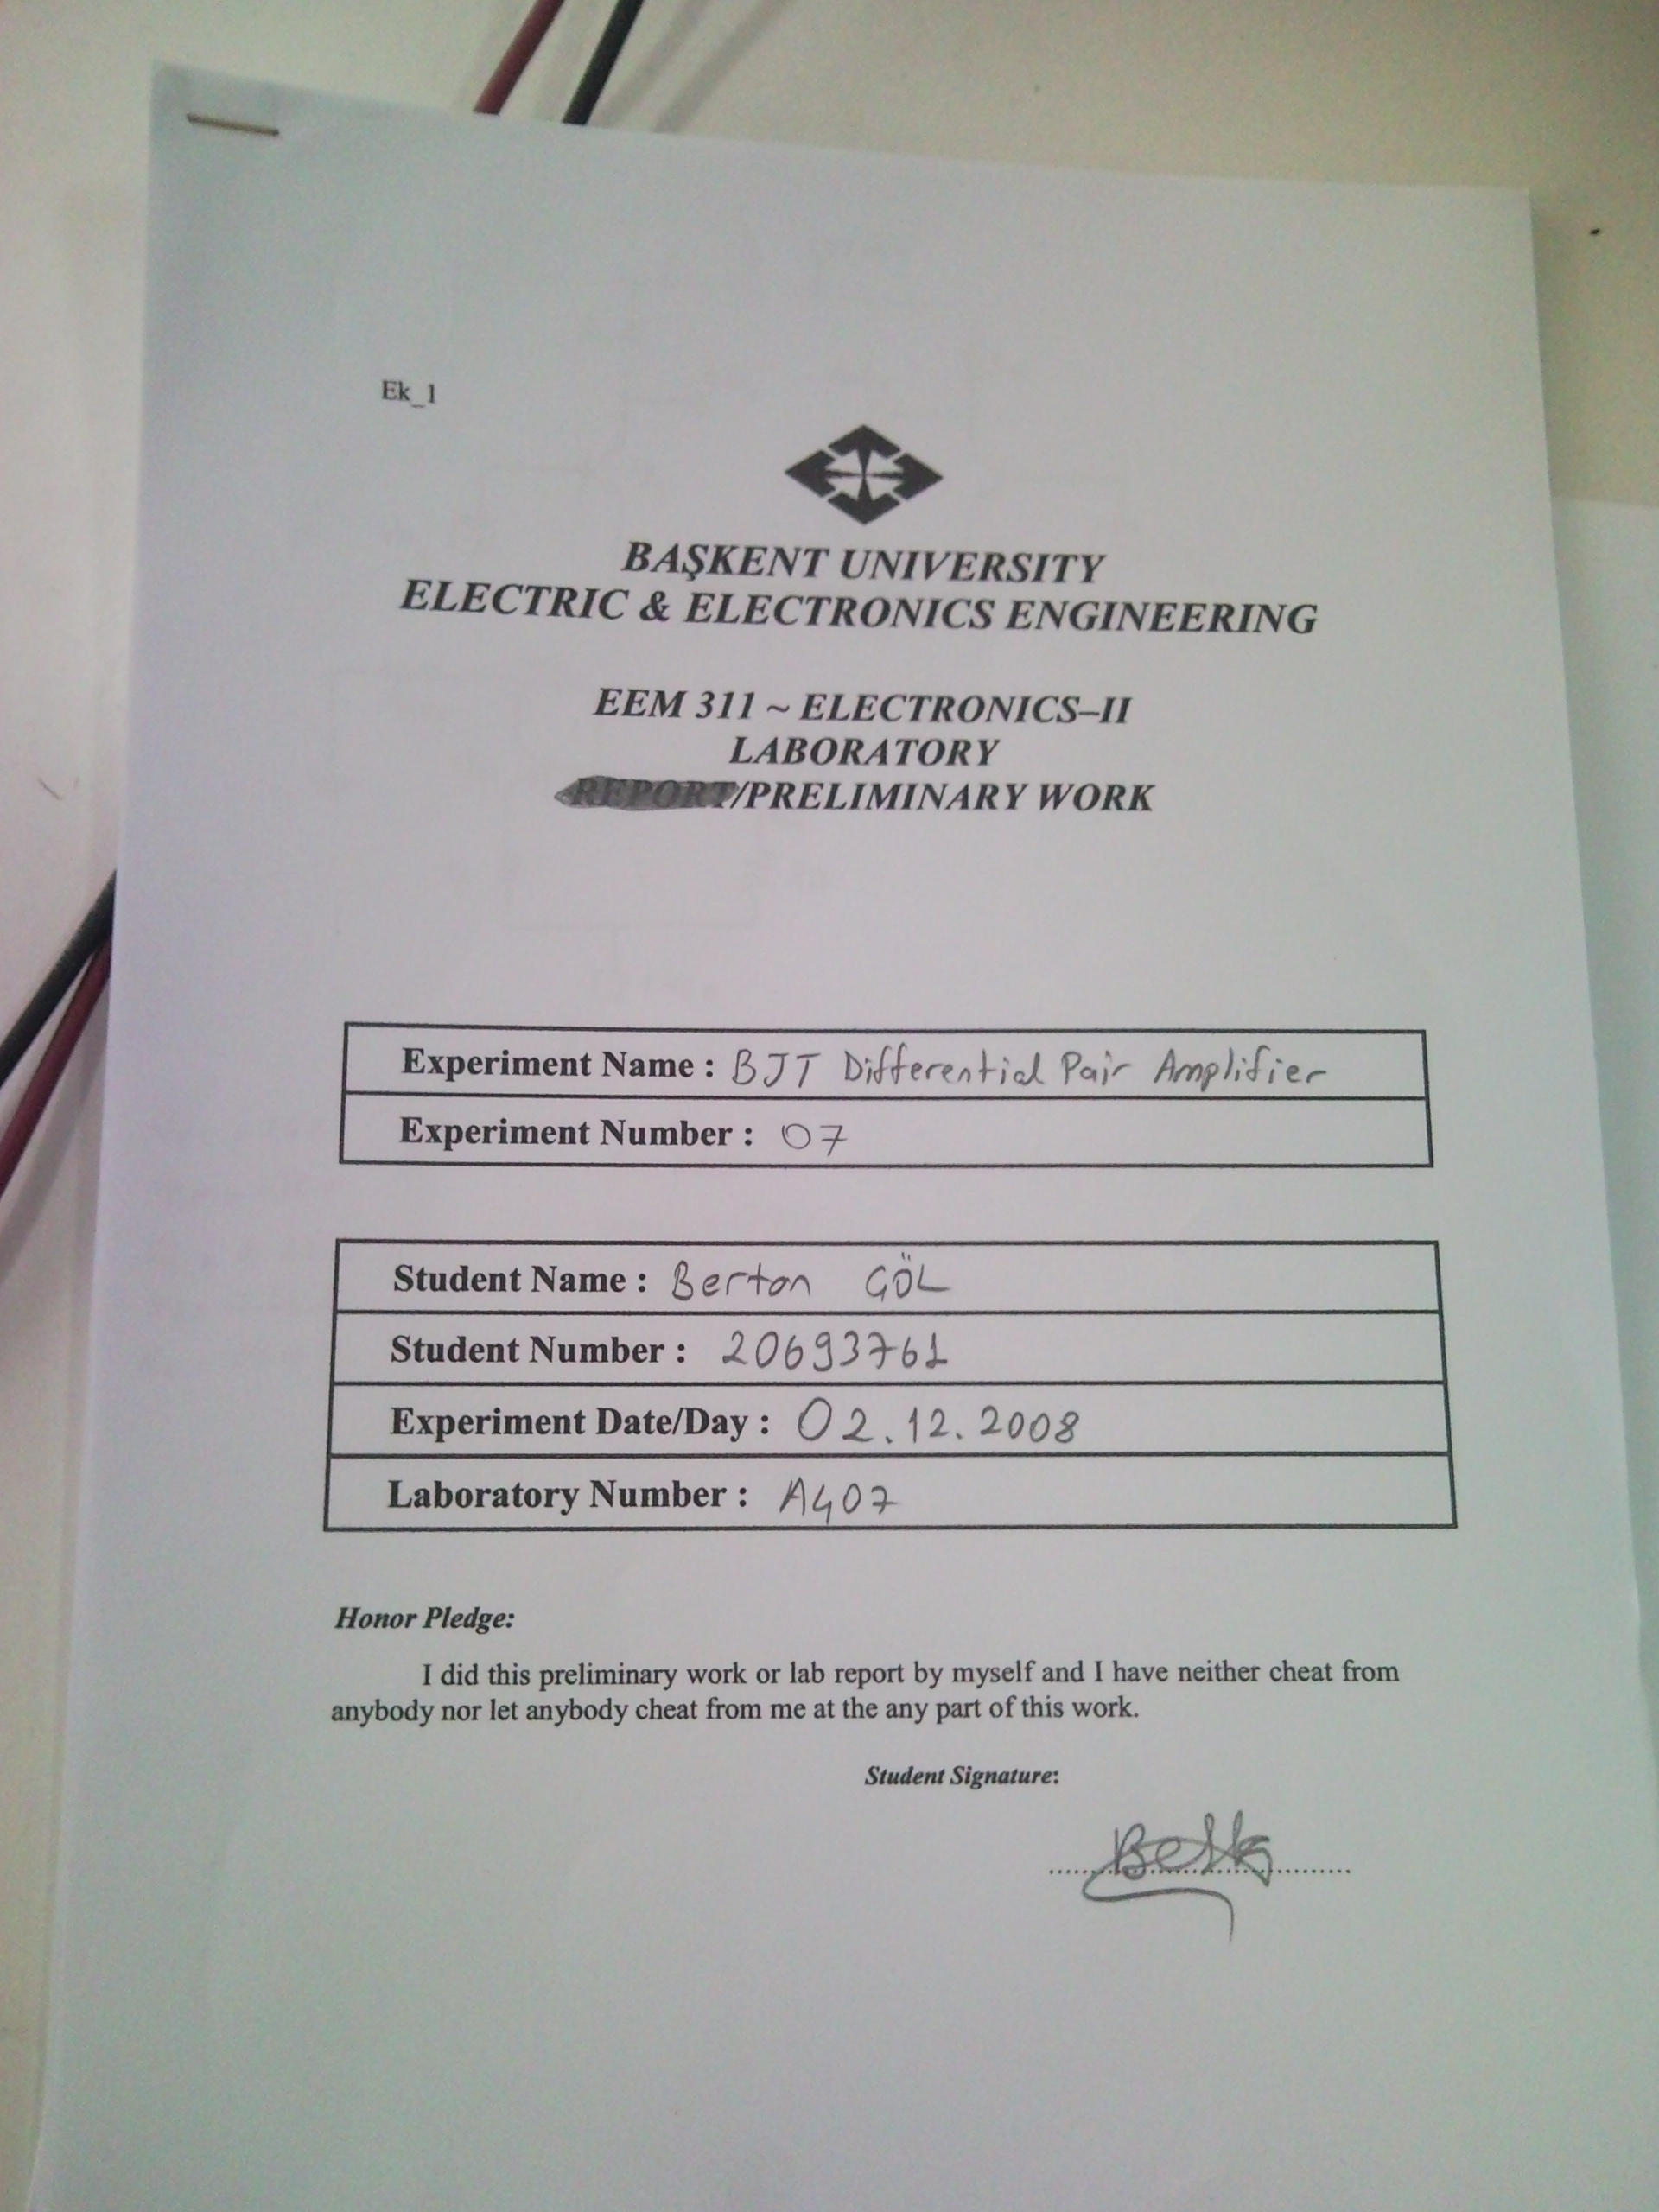 Ek_1
BAŞKENT UNIVERSITY
ELECTRIC & ELECTRONICS ENGINEERING
EEM 311 ~ ELECTRONICS–II
LABORATORY
REPORT/PRELIMINARY WORK
Experiment Name : BJT Differential Pair Amplifier
Experiment Number : 07
Student Name : Berton GÖL
Student Number : 20693761
Experiment Date/Day : 02.12.2008
Laboratory Number : A407
Honor Pledge:
I did this preliminary work or lab report by myself and I have neither cheat from
anybody nor let anybody cheat from me at the any part of this work.
Student Signature: